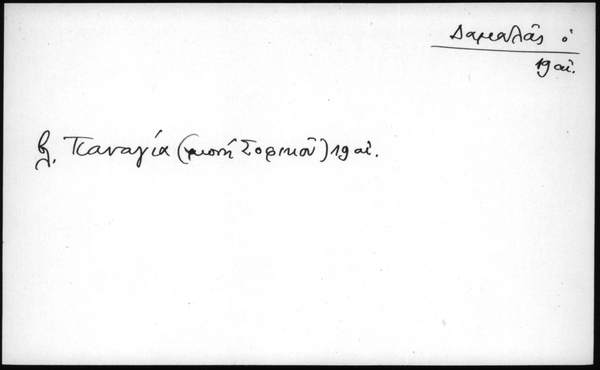 Δαμαλᾶς ὁ
19 αἰ.
βλ. Παναγία (μονή Σοφικοῦ) 19 αἰ.